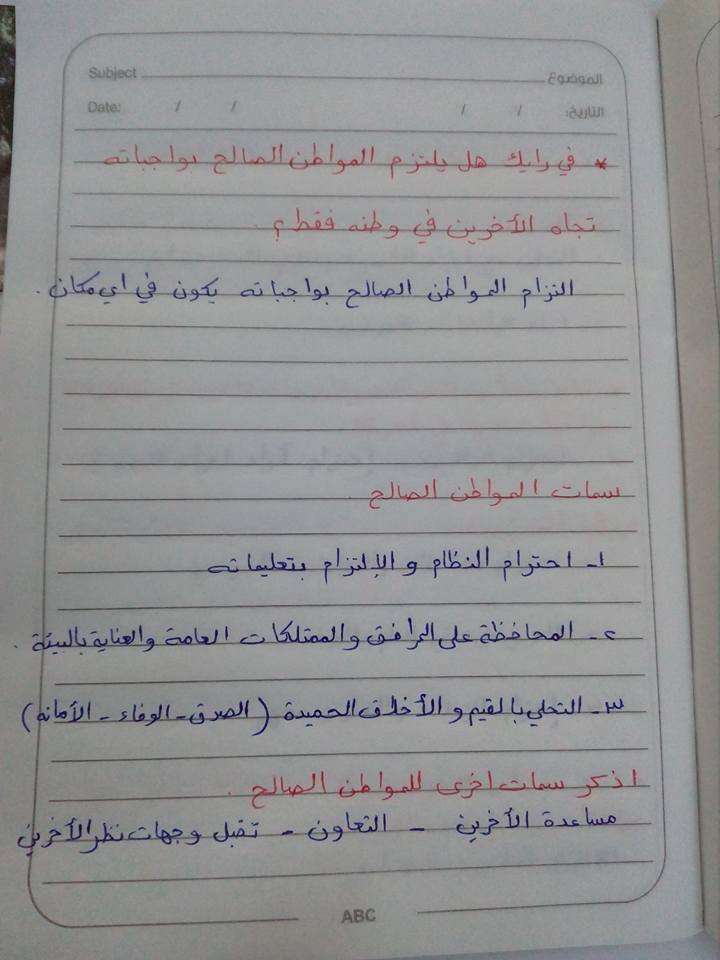 Subject الموضوع
Date: / / / / التاريخ:
* في رايك هل يلتزم المواطن الصالح بواجباته
تجاه الأخرين في وطنه فقط ؟
التزام المواطن الصالح بواجباته يكون في اي مكان .
سمات المواطن الصالح .
١- احترام النظام و الإلتزام بتعليماته
٢- المحافظة على المرافق والممتلكات العامة والعناية بالبيئة .
٣- التحلي بالقيم و الأخلاق الحميدة ( الصدق - الوفاء - الأمانه )
اذكر سمات اخرى للمواطن الصالح .
مساعدة الأخرين - التعاون - تقبل وجهات نظر الأخرين
ABC